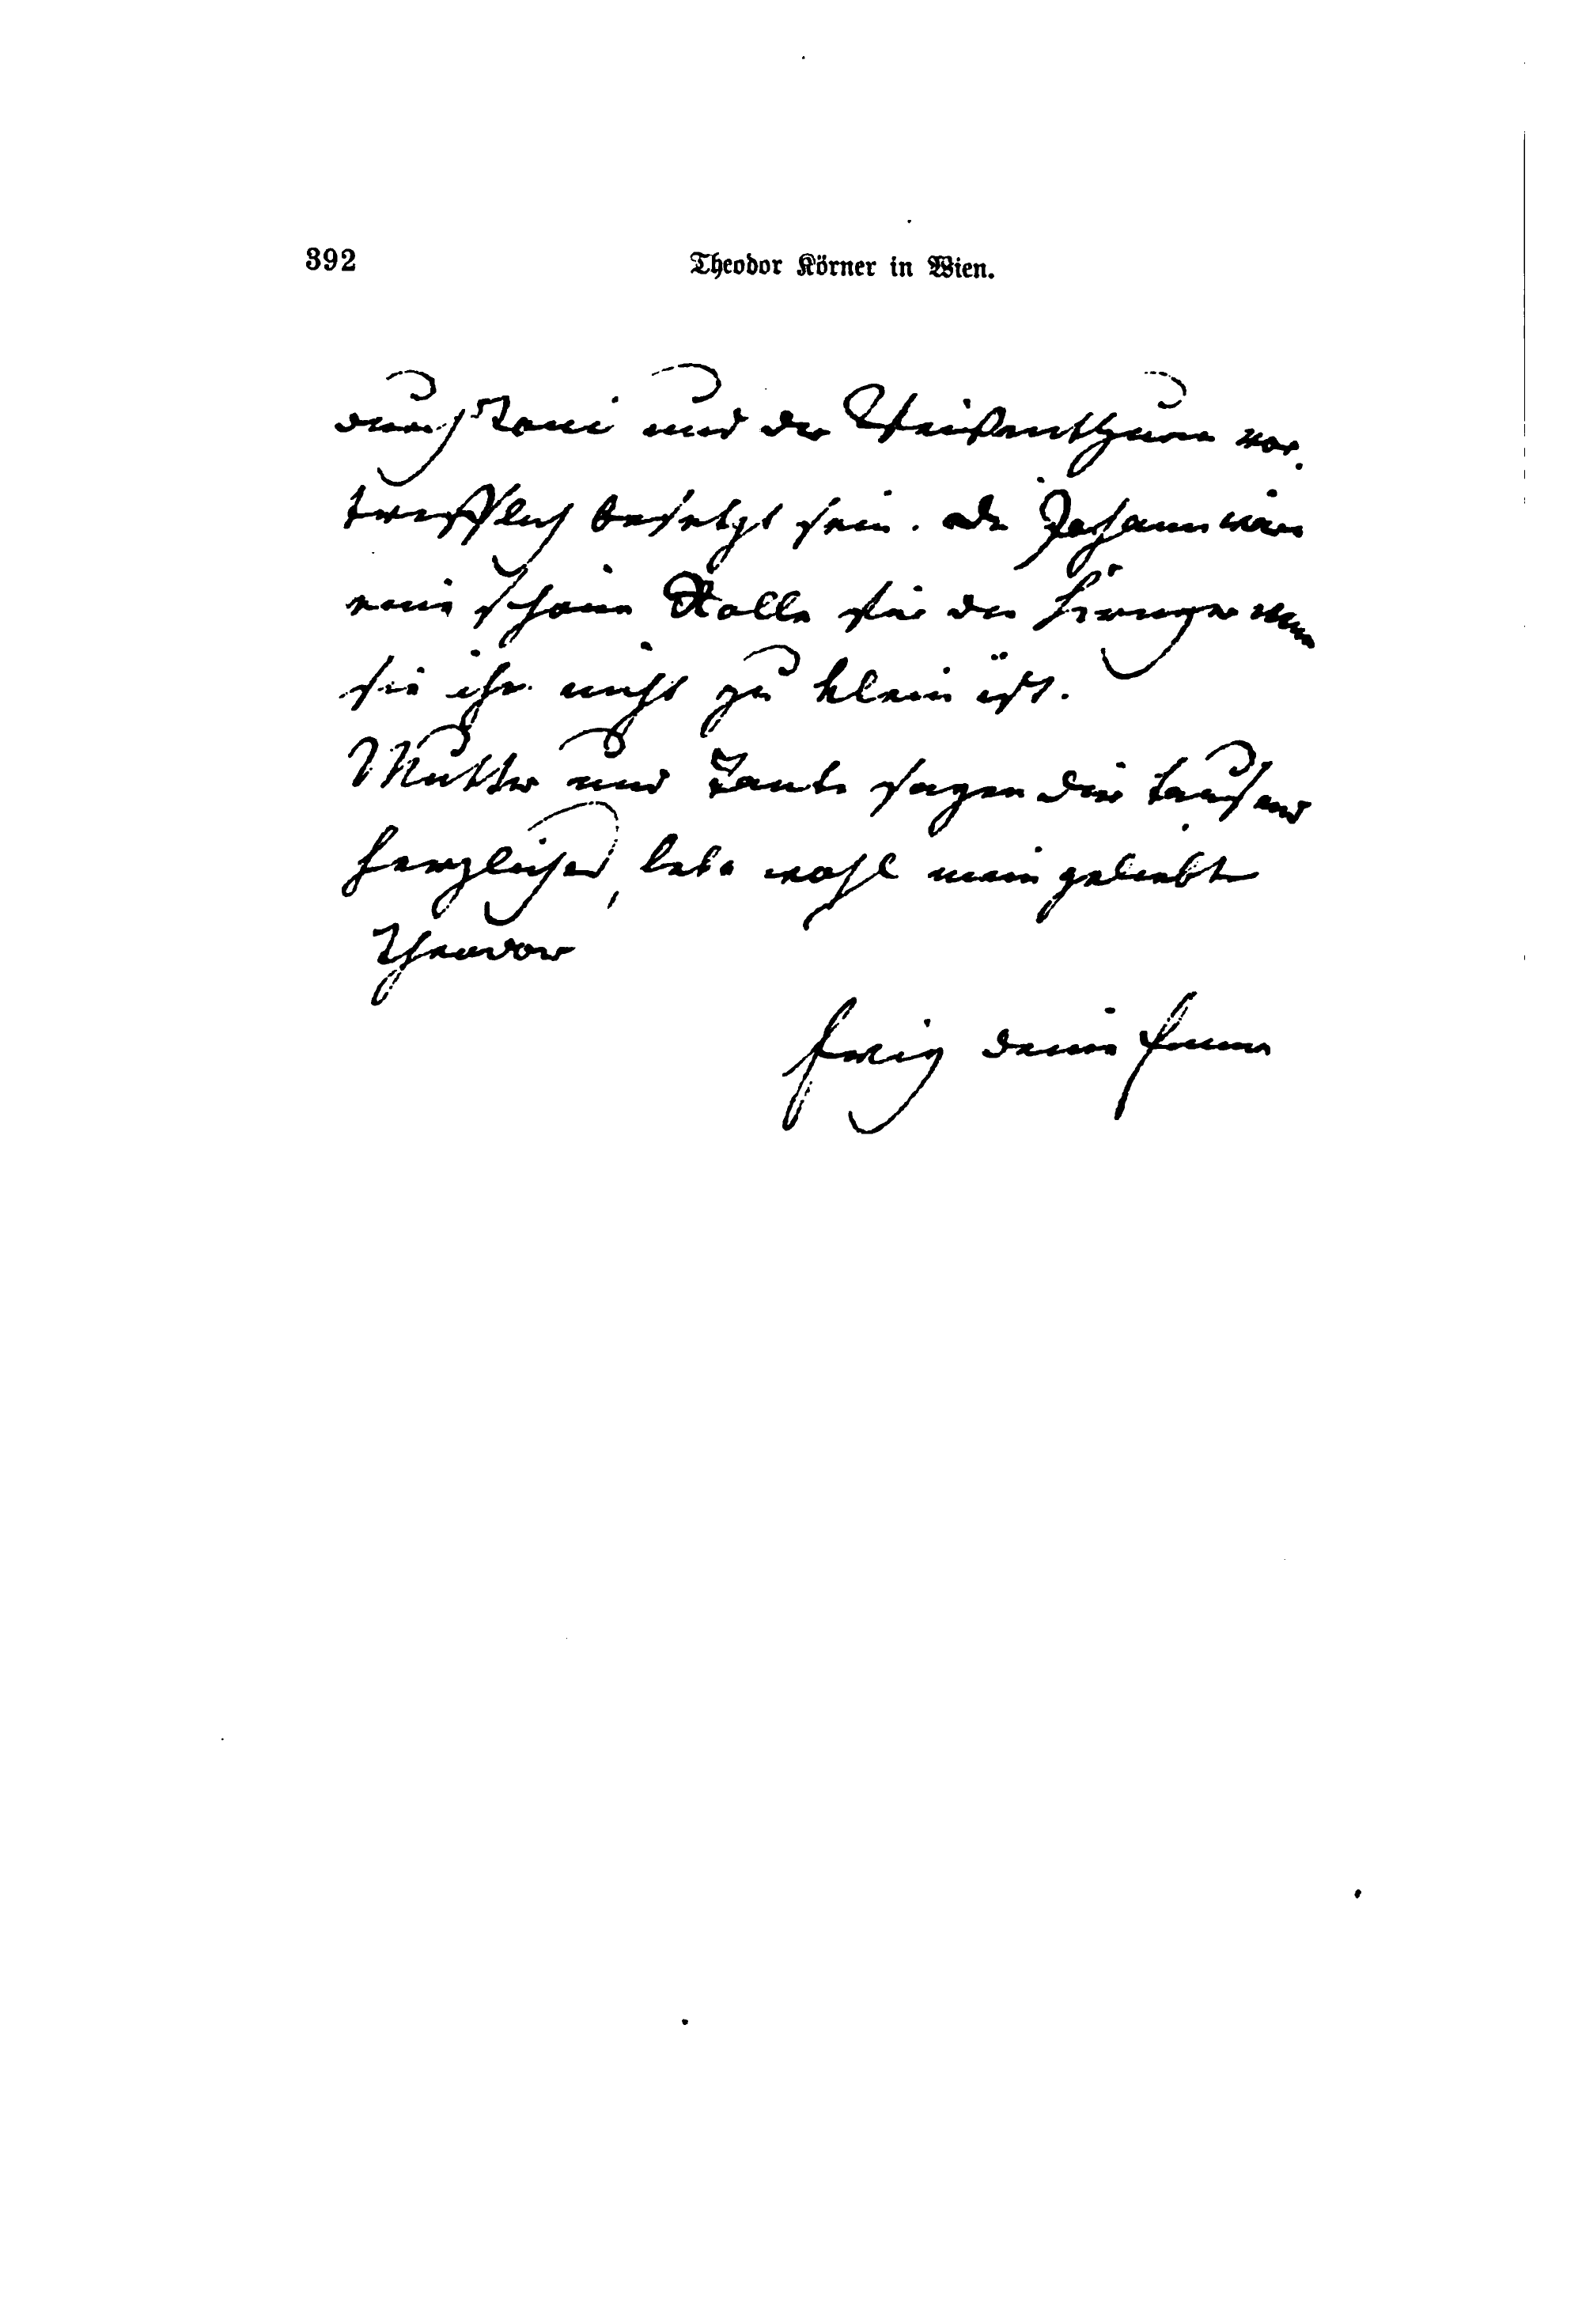 392
Theodor Körner in Wien.
durch Toni und die Weißenthurn vor
trefflich besetzt sein. die Johann wäre
eine schöne Rolle für die Krüger wenn
sie ihr nicht zu klein ist.
Mutter und Tante sagen dir tausend
herzliches, lebe wohl mein geliebter
Theodor
Ewig deine Emma